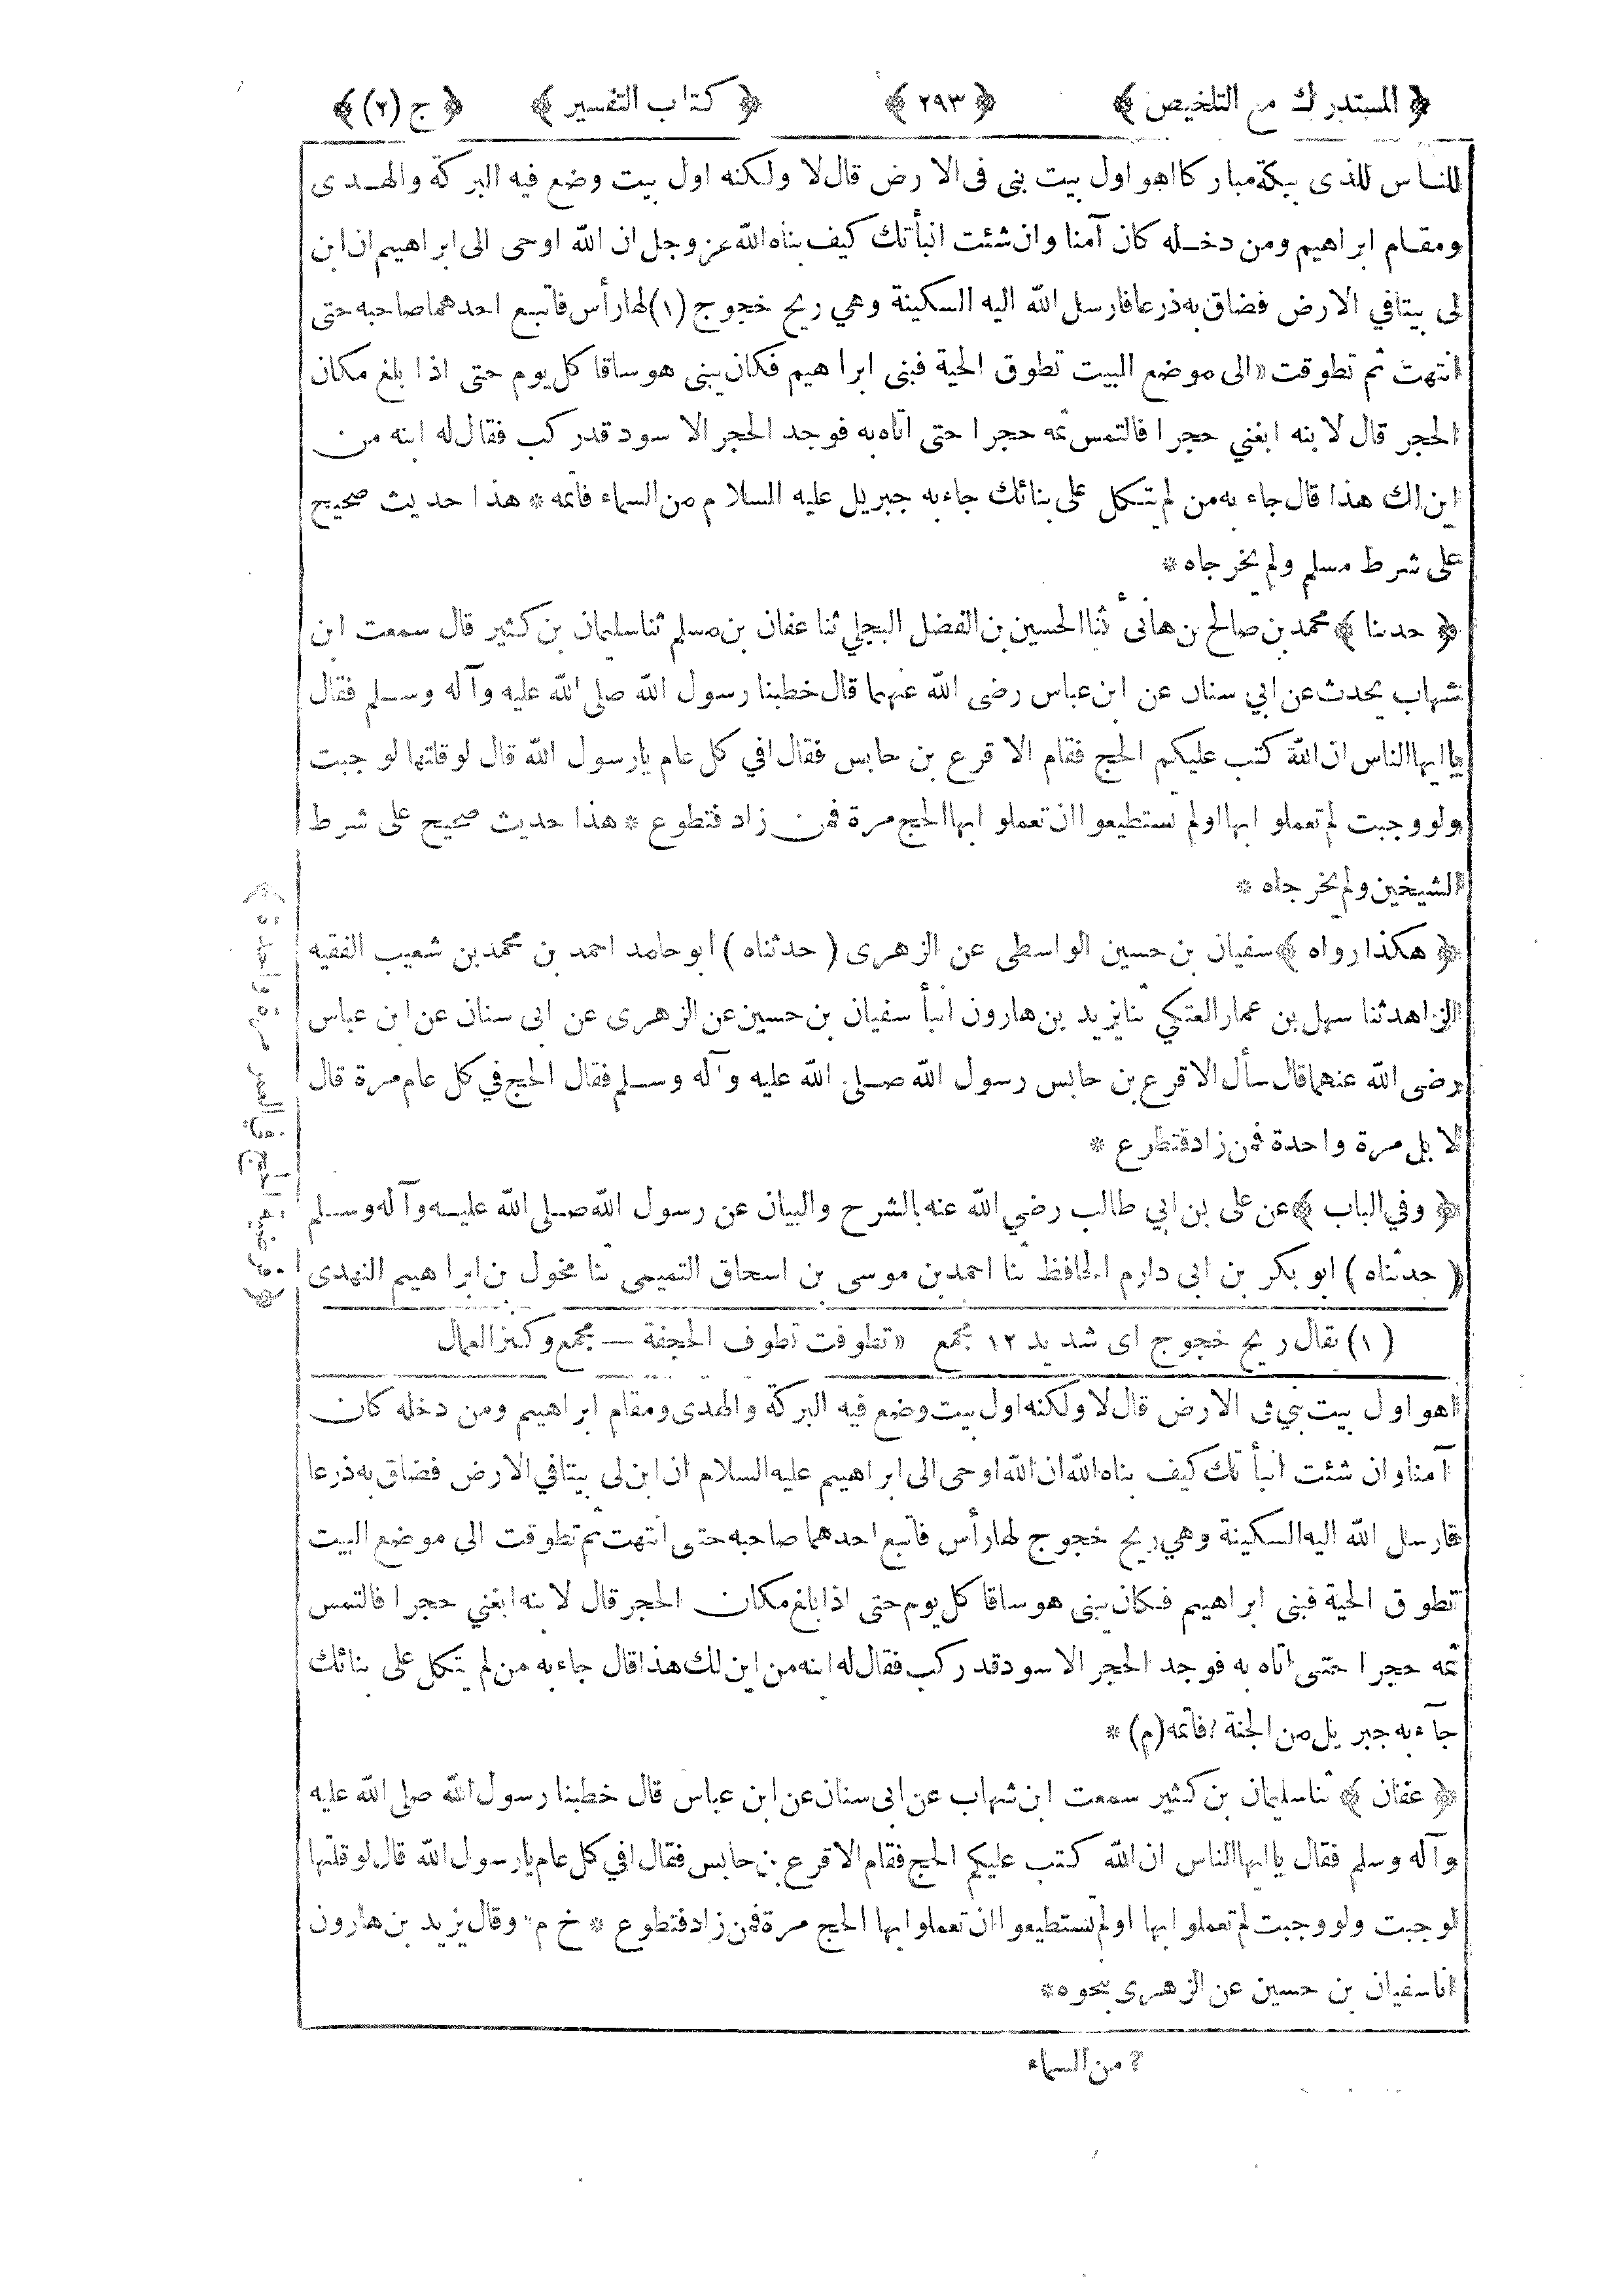 ﴿ المستدرك مع التلخيص ﴾ ﴿ ٢٩٣ ﴾ ﴿ كتاب التفسير ﴾ ﴿ ج (٢) ﴾
للناس للذى ببكة مباركا اهو اول بيت بنى فى الارض قال لا ولكنه اول بيت وضع فيه البركة والهدى
ومقام ابراهيم ومن دخله كان آمنا وان شئت انبأتك كيف بناه الله عز وجل ان الله اوحى الى ابراهيم ان ابن
لى بيتا في الارض فضاق به ذرعا فارسل الله اليه السكينة وهي ريح خجوج (١) لها رأس فاتبع احدهما صاحبه حتى
انتهت ثم تطوقت «الى موضع البيت تطوق الحية فبنى ابراهيم فكان يبنى هو ساقا كل يوم حتى اذا بلغ مكان
الحجر قال لابنه ابغني حجرا فالتمس ثمه حجرا حتى اتاه به فوجد الحجر الاسود قد ركب فقال له ابنه من
اين لك هذا قال جاء به من لم يتكل على بنائك جاء به جبريل عليه السلام من السماء فاتمه * هذا حديث صحيح
على شرط مسلم ولم يخرجاه *
﴿ حدثنا ﴾ محمد بن صالح بن هانئ ثنا الحسين بن الفضل البجلي ثنا عفان بن مسلم ثنا سليمان بن كثير قال سمعت ابن
شهاب يحدث عن ابي سنان عن ابن عباس رضى الله عنهما قال خطبنا رسول الله صلى الله عليه وآله وسلم فقال
يا ايها الناس ان الله كتب عليكم الحج فقام الاقرع بن حابس فقال افي كل عام يا رسول الله قال لو قلتها لوجبت
ولو وجبت لم تعملوا بها او لم تستطيعوا ان تعملوا بها الحج مرة فمن زاد فتطوع * هذا حديث صحيح على شرط
الشيخين ولم يخرجاه *
﴿ هكذا رواه ﴾ سفيان بن حسين الواسطى عن الزهرى ( حدثناه ) ابو حامد احمد بن محمد بن شعيب الفقيه
الزاهد ثنا سهل بن عمار العتكي ثنا يزيد بن هارون انبأ سفيان بن حسين عن الزهرى عن ابى سنان عن ابن عباس
رضى الله عنهما قال سأل الاقرع بن حابس رسول الله صلى الله عليه وآله وسلم فقال الحج في كل عام مرة قال
لا بل مرة واحدة فمن زاد فتطوع *
﴿ وفي الباب ﴾ عن على بن ابي طالب رضي الله عنه بالشرح والبيان عن رسول الله صلى الله عليه وآله وسلم
( حدثناه ) ابو بكر بن ابى دارم الحافظ ثنا احمد بن موسى بن اسحاق التميمى ثنا مخول بن ابراهيم النهدى
(١) يقال ريح خجوج اى شديد ١٢ مجمع «تطوقت تطوف الحجفة — مجمع وكنز العمال
اهو اول بيت بني فى الارض قال لا ولكنه اول بيت وضع فيه البركة والهدى ومقام ابراهيم ومن دخله كان
آمنا وان شئت انبأتك كيف بناه الله ان الله اوحى الى ابراهيم عليه السلام ان ابن لى بيتا في الارض فضاق به ذرعا
فارسل الله اليه السكينة وهي ريح خجوج لها رأس فاتبع احدهما صاحبه حتى انتهت ثم تطوقت الى موضع البيت
تطوق الحية فبنى ابراهيم فكان يبنى هو ساقا كل يوم حتى اذا بلغ مكان الحجر قال لابنه ابغني حجرا فالتمس
ثمه حجرا حتى اتاه به فوجد الحجر الاسود قد ركب فقال له ابنه من اين لك هذا قال جاء به من لم يتكل على بنائك
جاء به جبريل من الجنة ؟ فاتمه (م) *
﴿ عفان ﴾ ثنا سليمان بن كثير سمعت ابن شهاب عن ابى سنان عن ابن عباس قال خطبنا رسول الله صلى الله عليه
وآله وسلم فقال يا ايها الناس ان الله كتب عليكم الحج فقام الاقرع بن حابس فقال افي كل عام يا رسول الله قال لو قلتها
لوجبت ولو وجبت لم تعملوا بها او لم تستطيعوا ان تعملوا بها الحج مرة فمن زاد فتطوع * خ م وقال يزيد بن هارون
انا سفيان بن حسين عن الزهرى بنحوه *
؟ من السماء